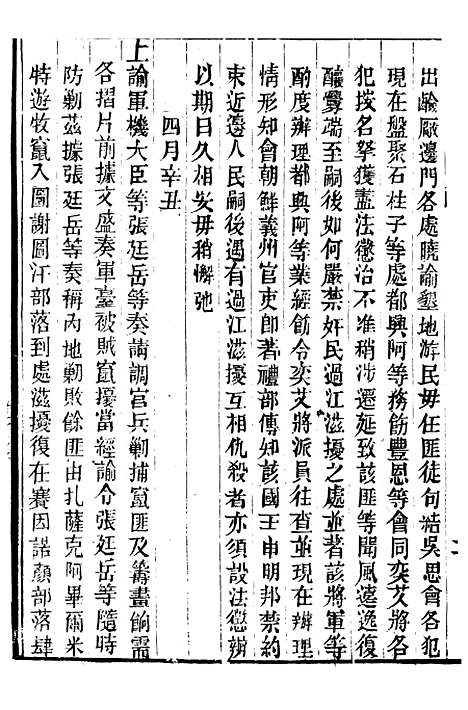 出鹻廠邊門各處曉諭墾地游民毋任匪徒句結吳思會各犯
現在盤聚石柱子等處都興阿等務飭豐恩等會同奕艾將各
犯按名拏獲盡法懲治不准稍涉遷延致該匪等聞風遠逸復
釀釁端至嗣後如何嚴禁奸民過江滋擾之處並著該將軍等
酌度辦理都興阿等業經飭令奕艾將派員往查並現在辦理
情形知會朝鮮義州官吏卽著禮部傳知該國王申明邦禁約
束近邊人民嗣後遇有過江滋擾互相仇殺者亦須設法懲辦
以期日久相安毋稍懈弛
四月辛丑
上諭軍機大臣等張廷岳等奏請調官兵勦捕竄匪及籌畫餉需
各摺片前據文盛奏軍臺被賊竄擾當經諭令張廷岳等隨時
防勦茲據張廷岳等奏稱內地勦敗餘匪由扎薩克阿畢爾米
特遊牧竄入圖謝圖汗部落到處滋擾復在賽因諾顏部落肆